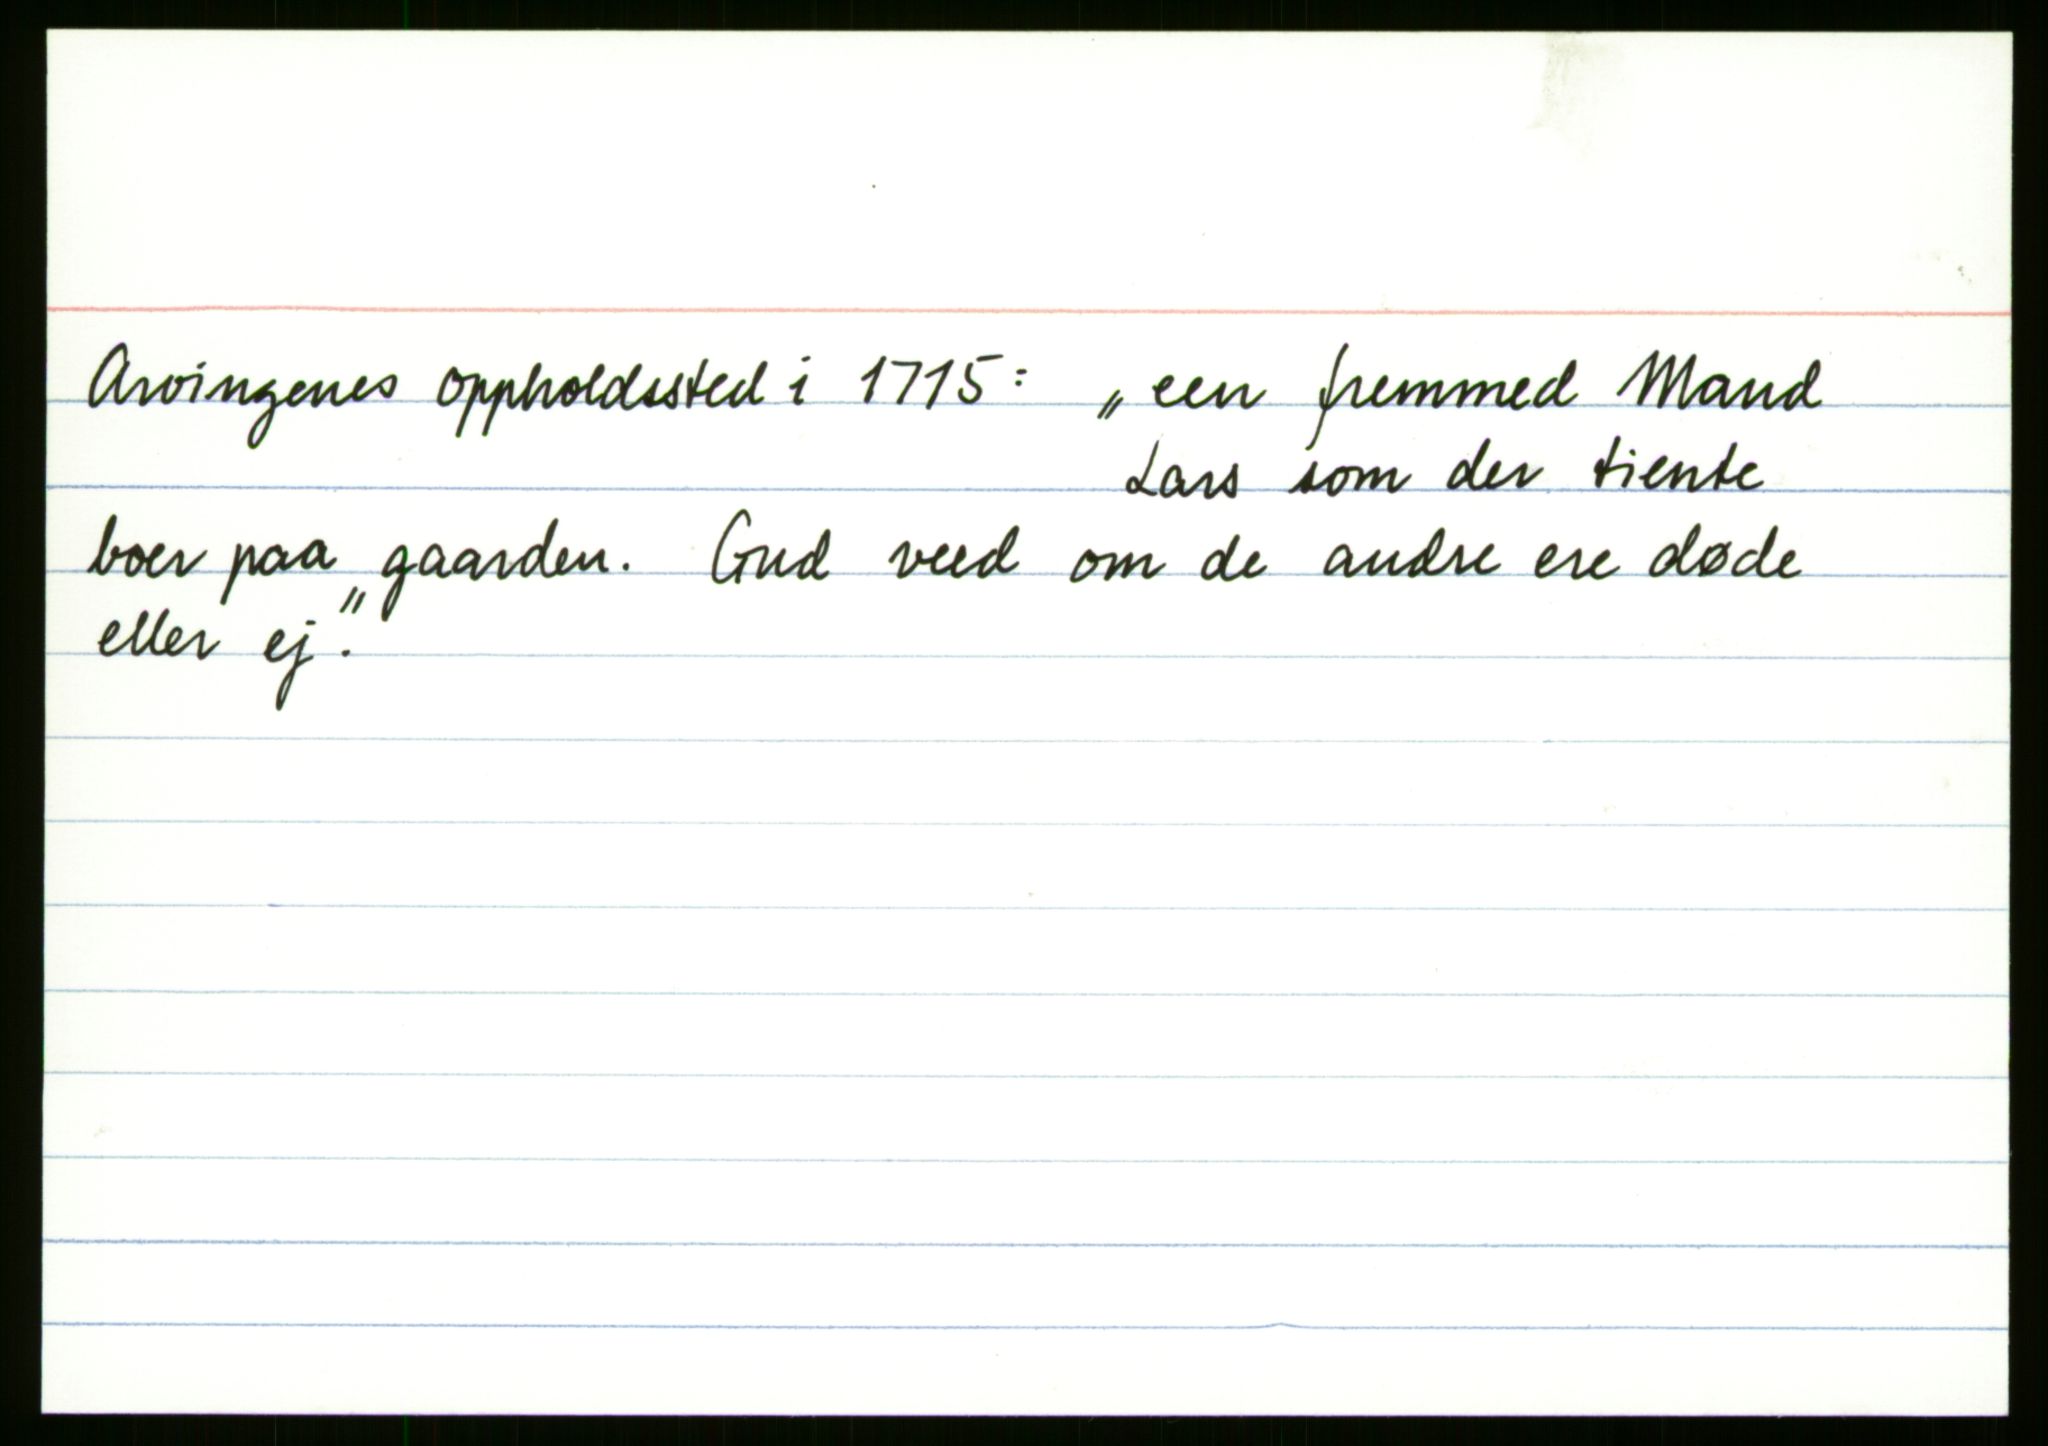 Arvingenes oppholdssted i 1715: „een fremmed Mand
Lars som der tiente
boer paa gaarden. Gud veed om de andre ere døde
eller ej."